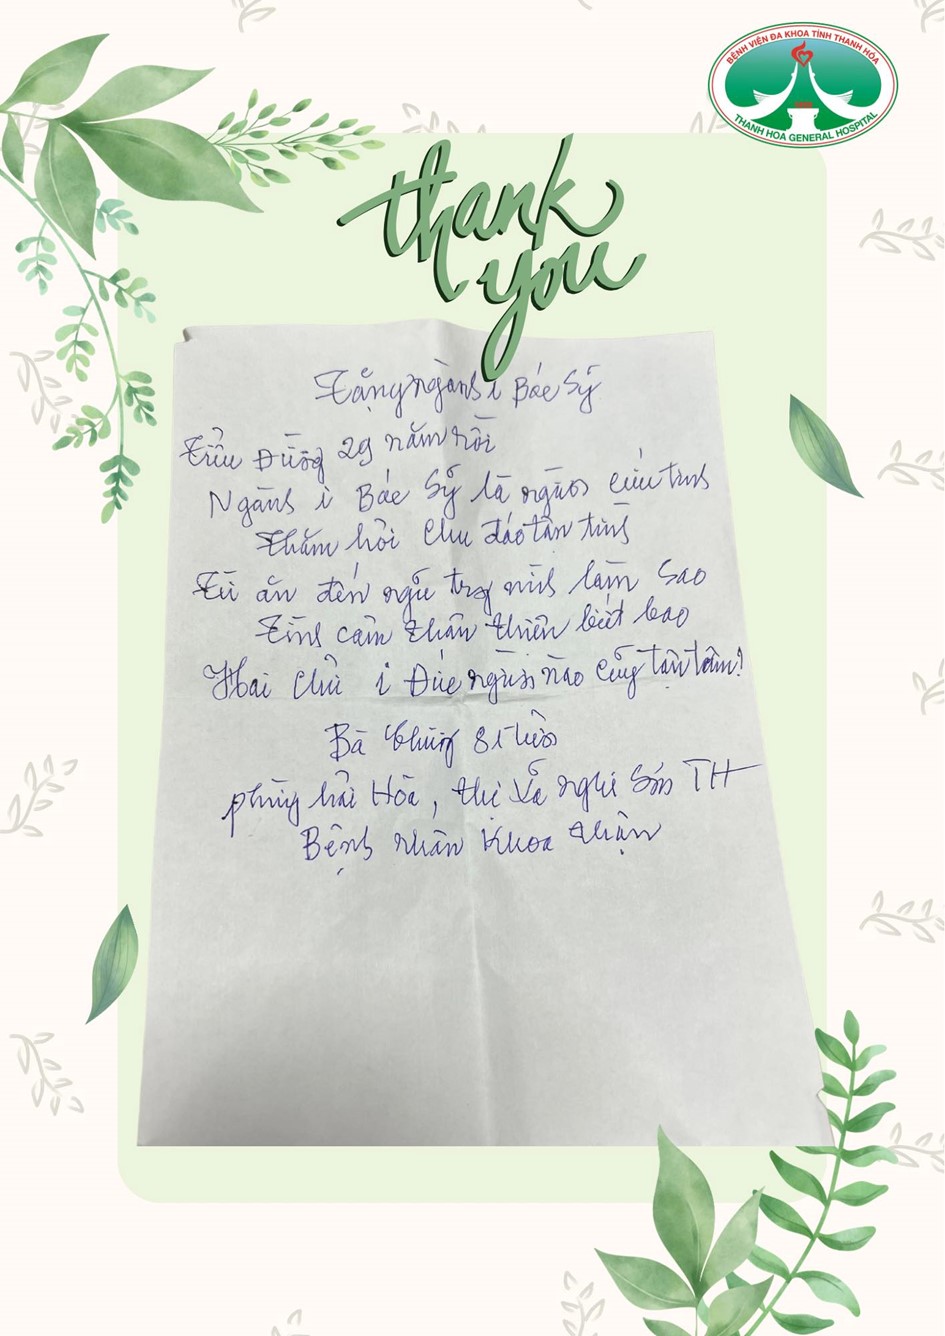 BỆNH VIỆN ĐA KHOA TỈNH THANH HÓA
THANH HOA GENERAL HOSPITAL
thank
you
Tặng ngành i Bác Sỹ
Đùng 29 năm rồi
Ngành i Bác Sỹ là người cứu tinh
Thăm hỏi chu đáo tận tình
Từ ăn đến ngũ trog mình làm sao
Tình cảm thân thiên biết bao
Hai chữ i Đức người nào cũg tận tâm?
Bà 81 tuổi
phừng hải Hòa, thị xã nghi Sơn TH
Bệnh nhân Khoa thận